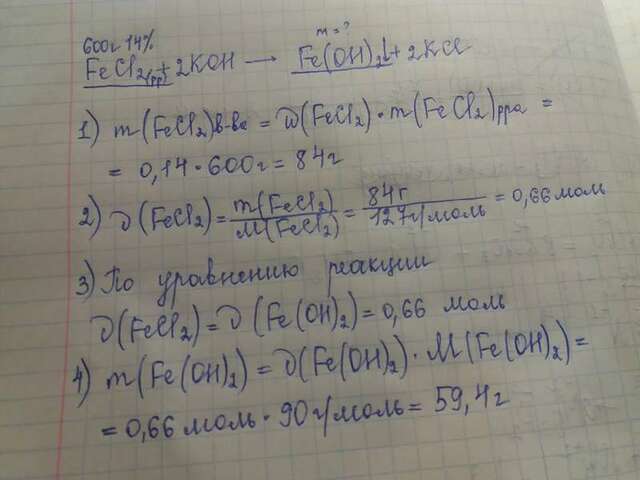 m = ?
600г 14%
FeCl2(рр) + 2KOH → Fe(OH)2↓ + 2KCl
1) m(FeCl2)в-ва = ω(FeCl2) · m(FeCl2)рра =
= 0,14 · 600г = 84г
2) ν(FeCl2) = m(FeCl2)/M(FeCl2) = 84г/127г/моль = 0,66 моль
3) По уравнению реакции
ν(FeCl2) = ν(Fe(OH)2) = 0,66 моль
4) m(Fe(OH)2) = ν(Fe(OH)2) · M(Fe(OH)2) =
= 0,66 моль · 90г/моль = 59,4г